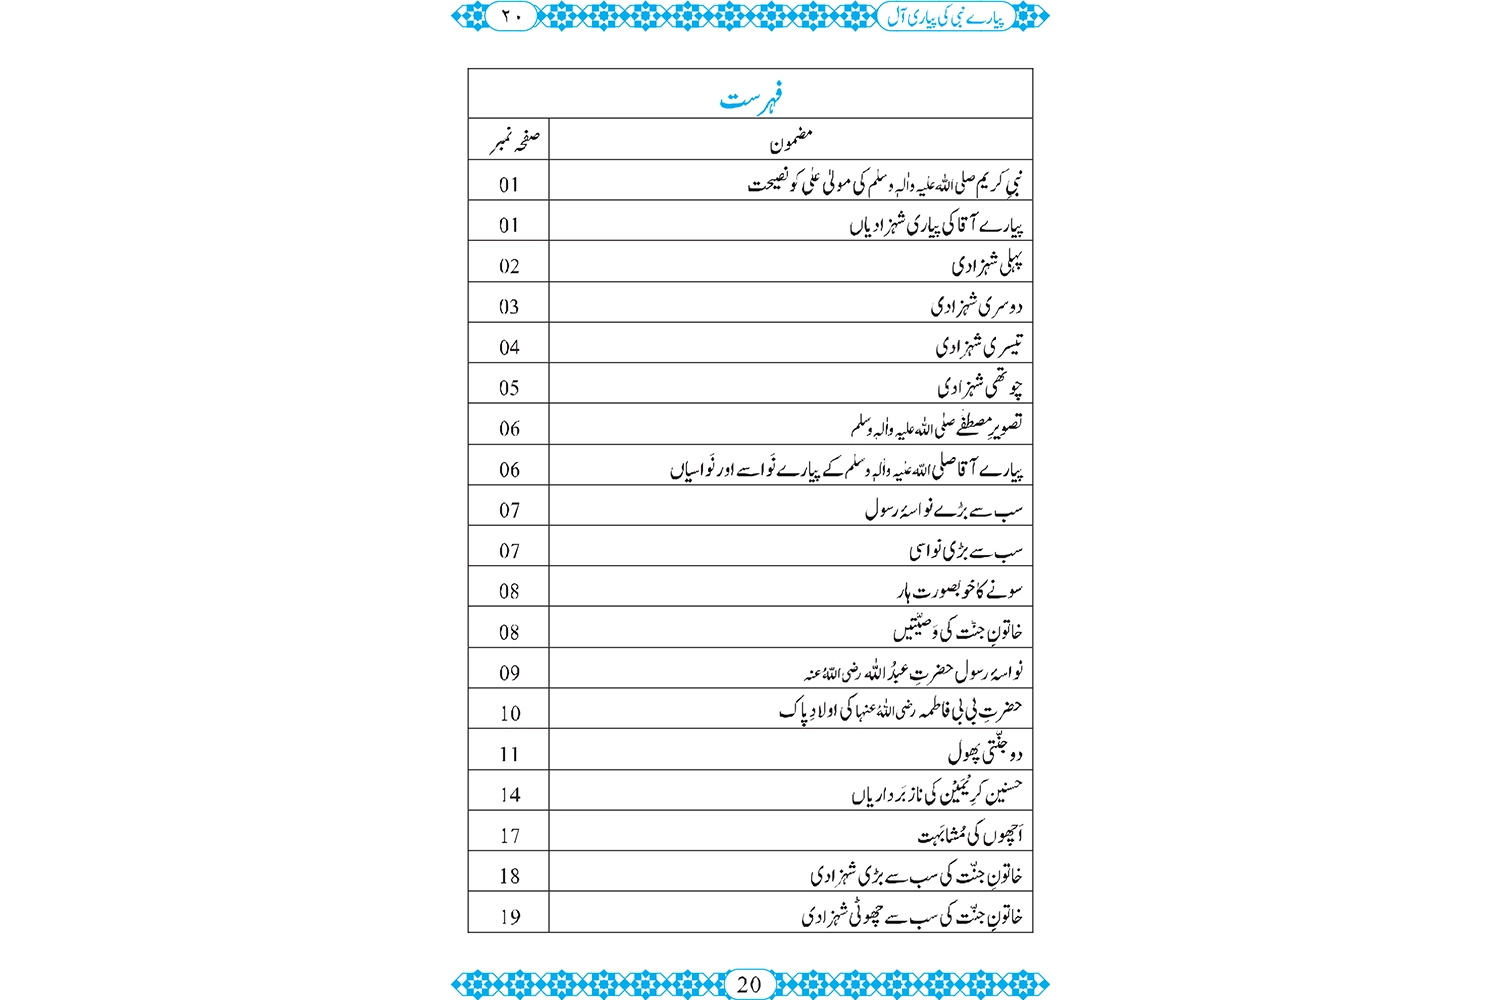 پیارے نبی کی پیاری آل ۲۰
فہرست
مضمون صفحہ نمبر
نبیِ کریم صلی اللہ علیہ واٰلہٖ وسلم کی مولیٰ علی کو نصیحت 01
پیارے آقا کی پیاری شہزادیاں 01
پہلی شہزادی 02
دوسری شہزادی 03
تیسری شہزادی 04
چوتھی شہزادی 05
تصویرِ مصطفےٰ صلی اللہ علیہ واٰلہٖ وسلم 06
پیارے آقا صلی اللہ علیہ واٰلہٖ وسلم کے پیارے نَواسے اور نَواسیاں 06
سب سے بڑے نواسۂ رسول 07
سب سے بڑی نواسی 07
سونے کا خوبصورت ہار 08
خاتونِ جنّت کی وَصیّتیں 08
نواسۂ رسول حضرتِ عبدُ اللہ رضی اللہُ عنہ 09
حضرتِ بی بی فاطمہ رضی اللہُ عنہا کی اولادِ پاک 10
دو جنّتی پھول 11
حسنین کَرِیْمَیْن کی ناز بَرداریاں 14
اَچھوں کی مُشابَہت 17
خاتونِ جنّت کی سب سے بڑی شہزادی 18
خاتونِ جنّت کی سب سے چھوٹی شہزادی 19
20